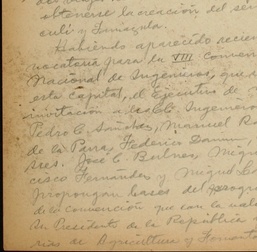 obtenerse la creación del ser
culi y Tamazula.
Habiendo aparecido recien
vocatoria para la VIII Conven
Nacional de Ingenieros, que
esta Capital, el Ejecutivo de
invitación a los CC. Ingenieros
Pedro C. Sánchez, Manuel R
de la Parra, Federico
sres. José C. Bulnes, Migu
cisco Fernández y Miguel
propongan bases del progra
de la convención que con la valio
Sr. Presidente de la República
rias de Agricultura y Fomento